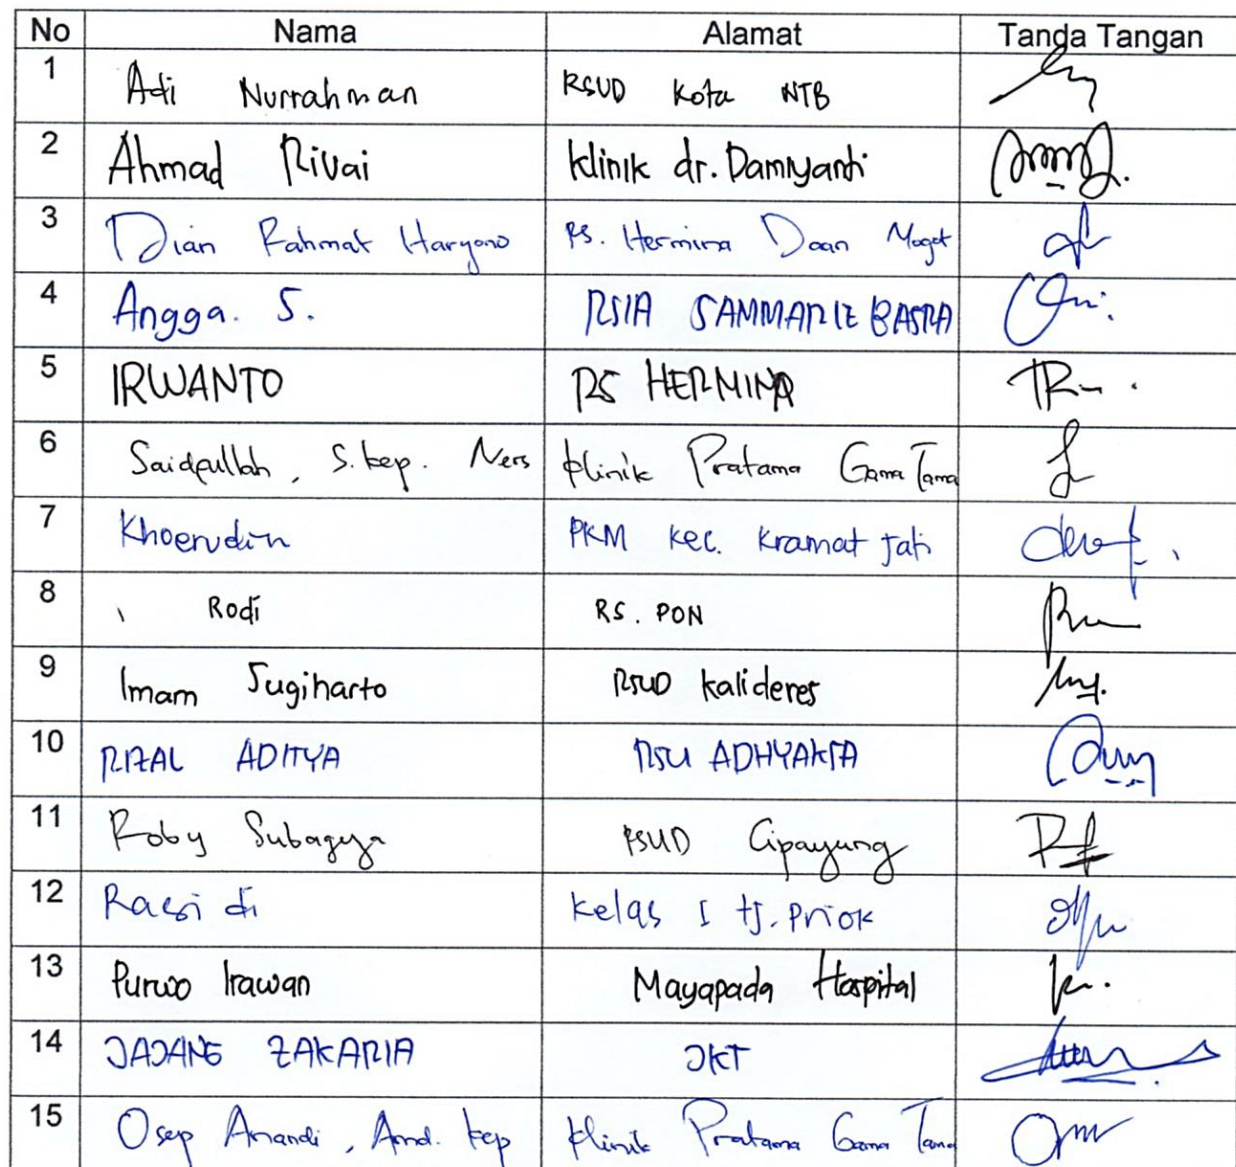 No Nama Alamat Tanda Tangan
1 Adi Nurrahman RSUD Kota NTB
2 Ahmad Rivai Klinik dr. Damiyanti
3 Dian Rahmat Haryono RS. Hermina Daan Mogot
4 Angga. S. RSIA SAMMARIE BASRA
5 IRWANTO RS HERMINA
6 Saidfullah, S.kep. Ners Klinik Pratama Gama Tama
7 Khoerudin PKM kec. kramat jati
8 Rodi RS. PON
9 Imam Sugiharto RSUD kalideres
10 RIZAL ADITYA RSU ADHYAKSA
11 Roby Subagya RSUD Cipayung
12 Rasidi kelas I tj. Priok
13 Purwo Irawan Mayapada Hospital
14 JAJANG ZAKARIA JKT
15 Osep Anandi, Amd. kep Klinik Pratama Gama Tama